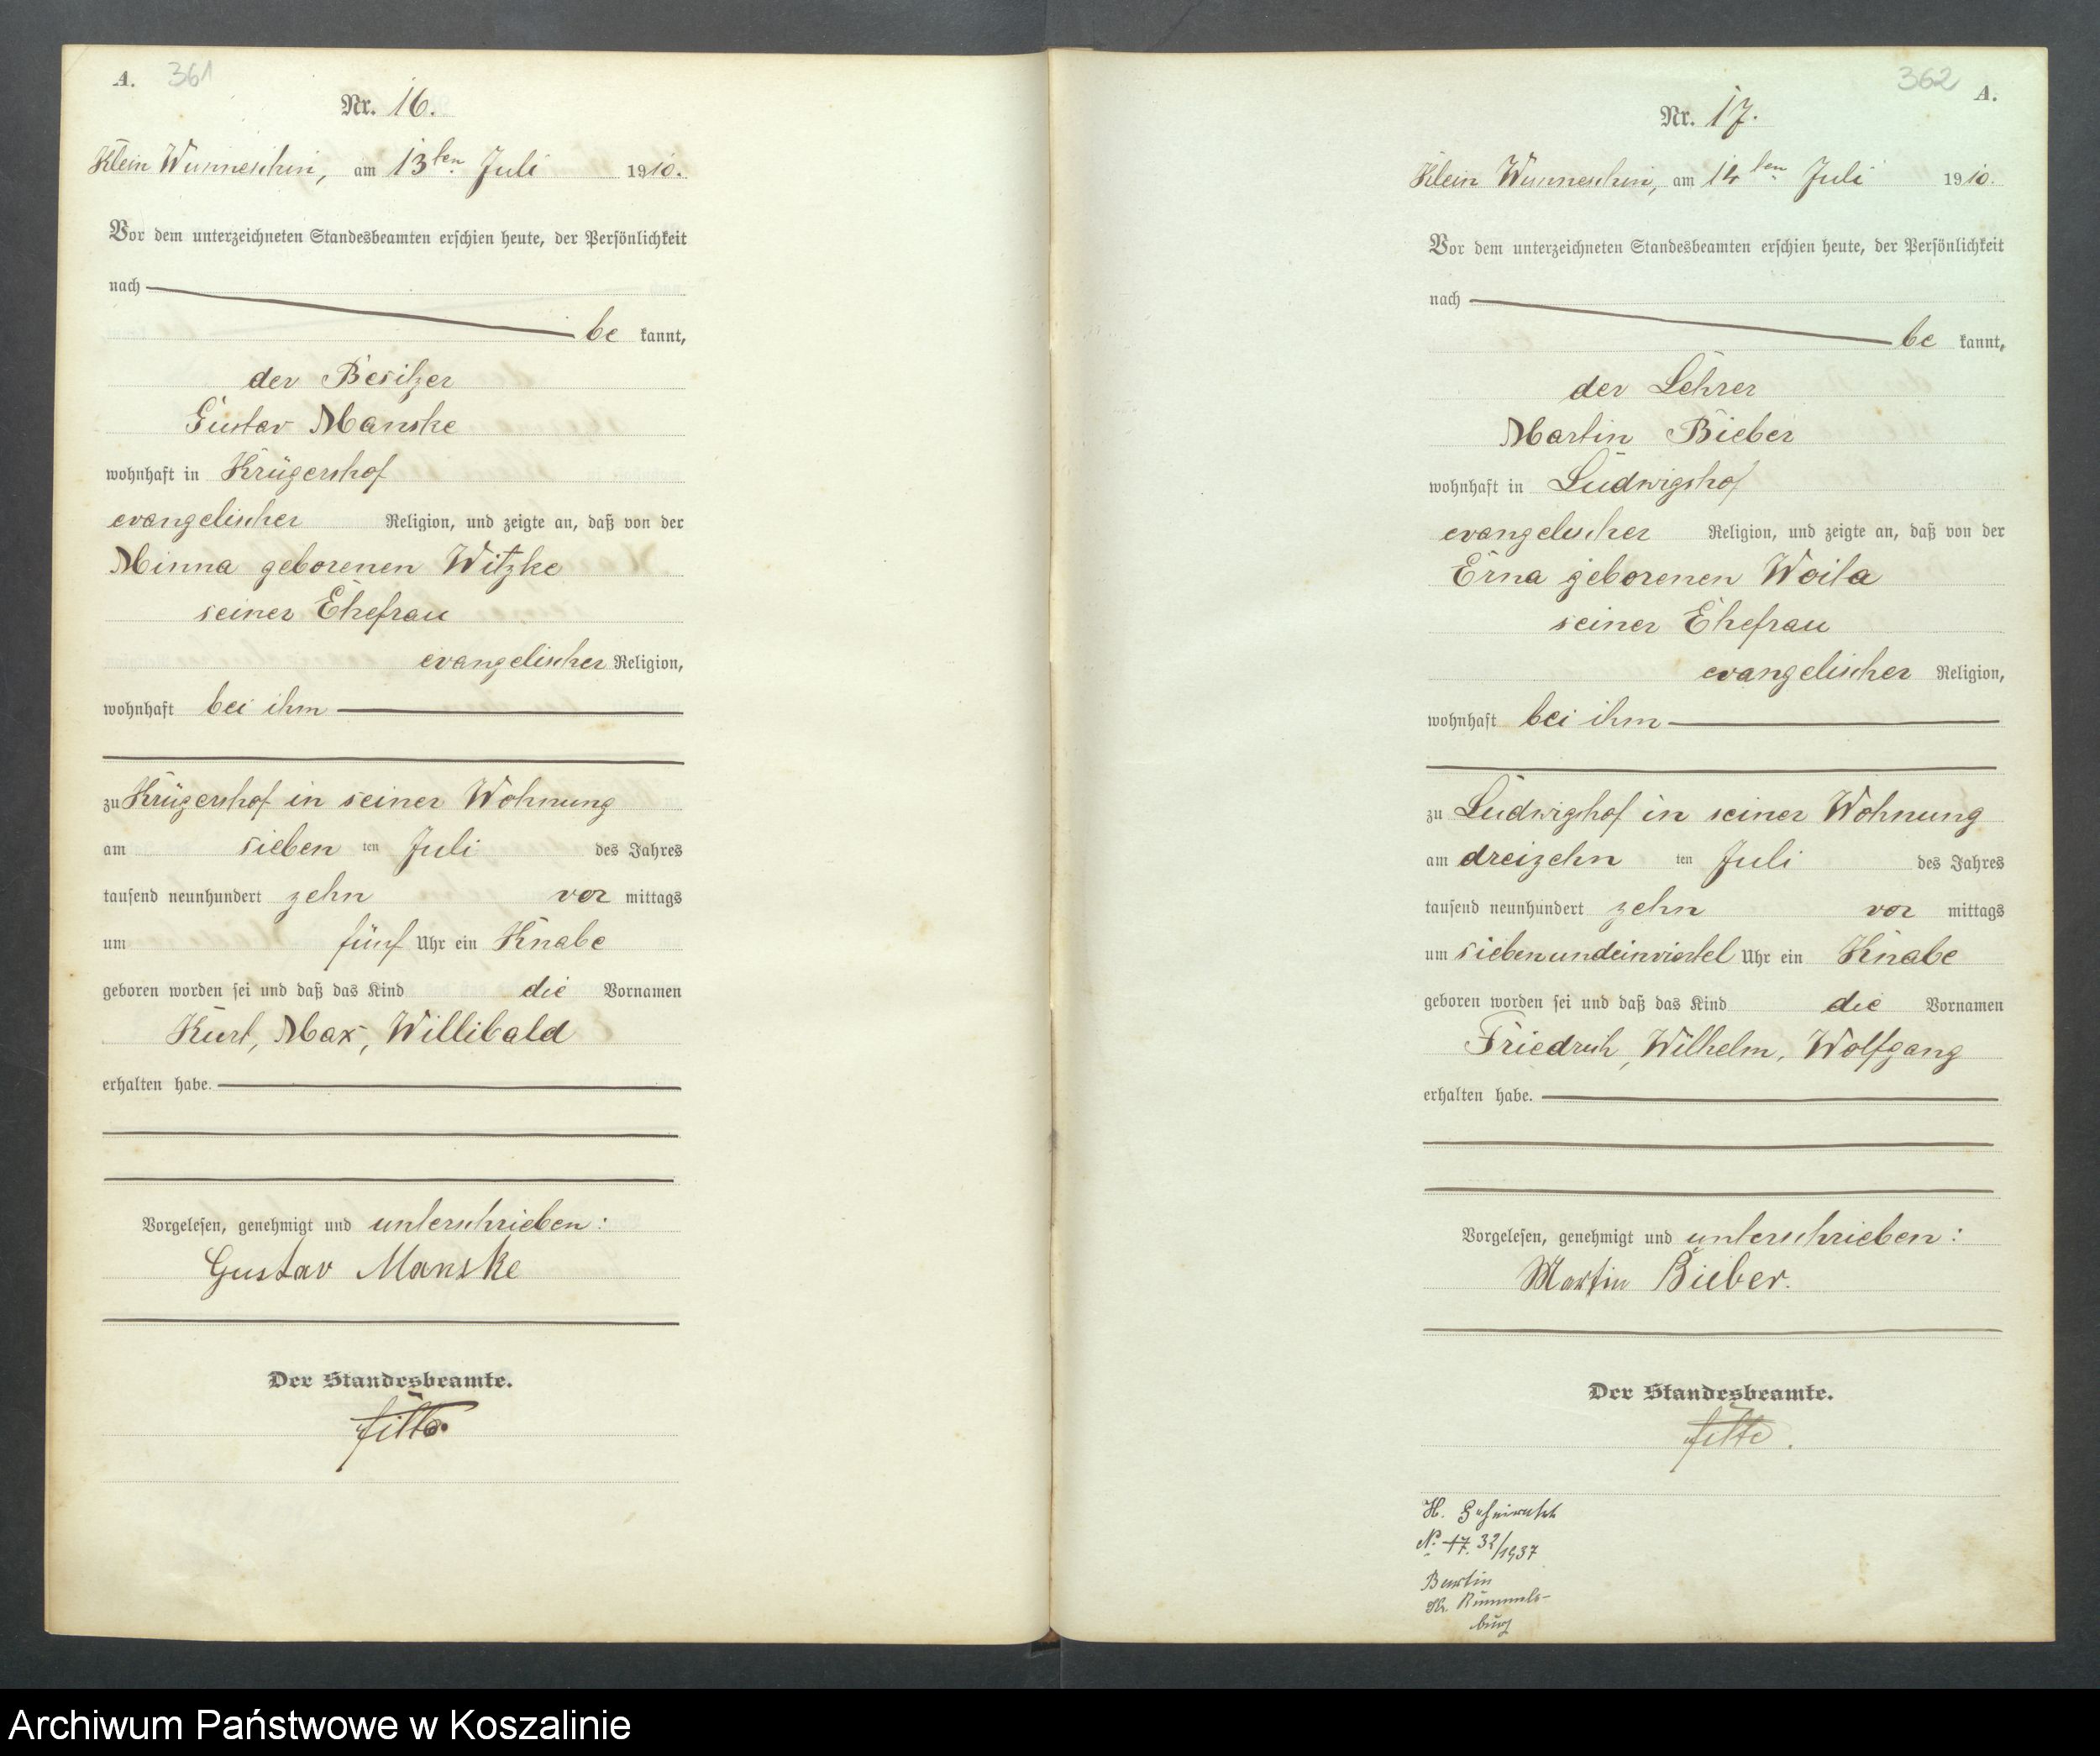 A. 361
Nr. 16.
Klein Wunneschin, am 13ten Juli 1910.
Vor dem unterzeichneten Standesbeamten erschien heute, der Persönlichkeit
nach
be kannt,
der Besitzer
Gustav Manske
wohnhaft in Krügershof
evangelischer Religion, und zeigte an, daß von der
Minna geborenen Witzke
seiner Ehefrau
evangelischer Religion,
wohnhaft bei ihm
zu Krügershof in seiner Wohnung
am sieben ten Juli des Jahres
tausend neunhundert zehn vor mittags
um fünf Uhr ein Knabe
geboren worden sei und daß das Kind die Vornamen
Kurt, Max, Willibald
erhalten habe.
Vorgelesen, genehmigt und unterschrieben:
Gustav Manske
Der Standesbeamte.
362 A.
Nr. 17.
Klein Wunneschin, am 14ten Juli 1910.
Vor dem unterzeichneten Standesbeamten erschien heute, der Persönlichkeit
nach
be kannt,
der Lehrer
Martin Bieber
wohnhaft in Ludwigshof
evangelischer Religion, und zeigte an, daß von der
Erna geborenen Woita
seiner Ehefrau
evangelischer Religion,
wohnhaft bei ihm
zu Ludwigshof in seiner Wohnung
am dreizehn ten Juli des Jahres
tausend neunhundert zehn vor mittags
um siebenundeinviertel Uhr ein Knabe
geboren worden sei und daß das Kind die Vornamen
Friedrich, Wilhelm, Wolfgang
erhalten habe.
Vorgelesen, genehmigt und unterschrieben:
Martin Bieber.
Der Standesbeamte.
No 17. 32/1937
Bartin
Kr. Rummels-
burg
Archiwum Państwowe w Koszalinie